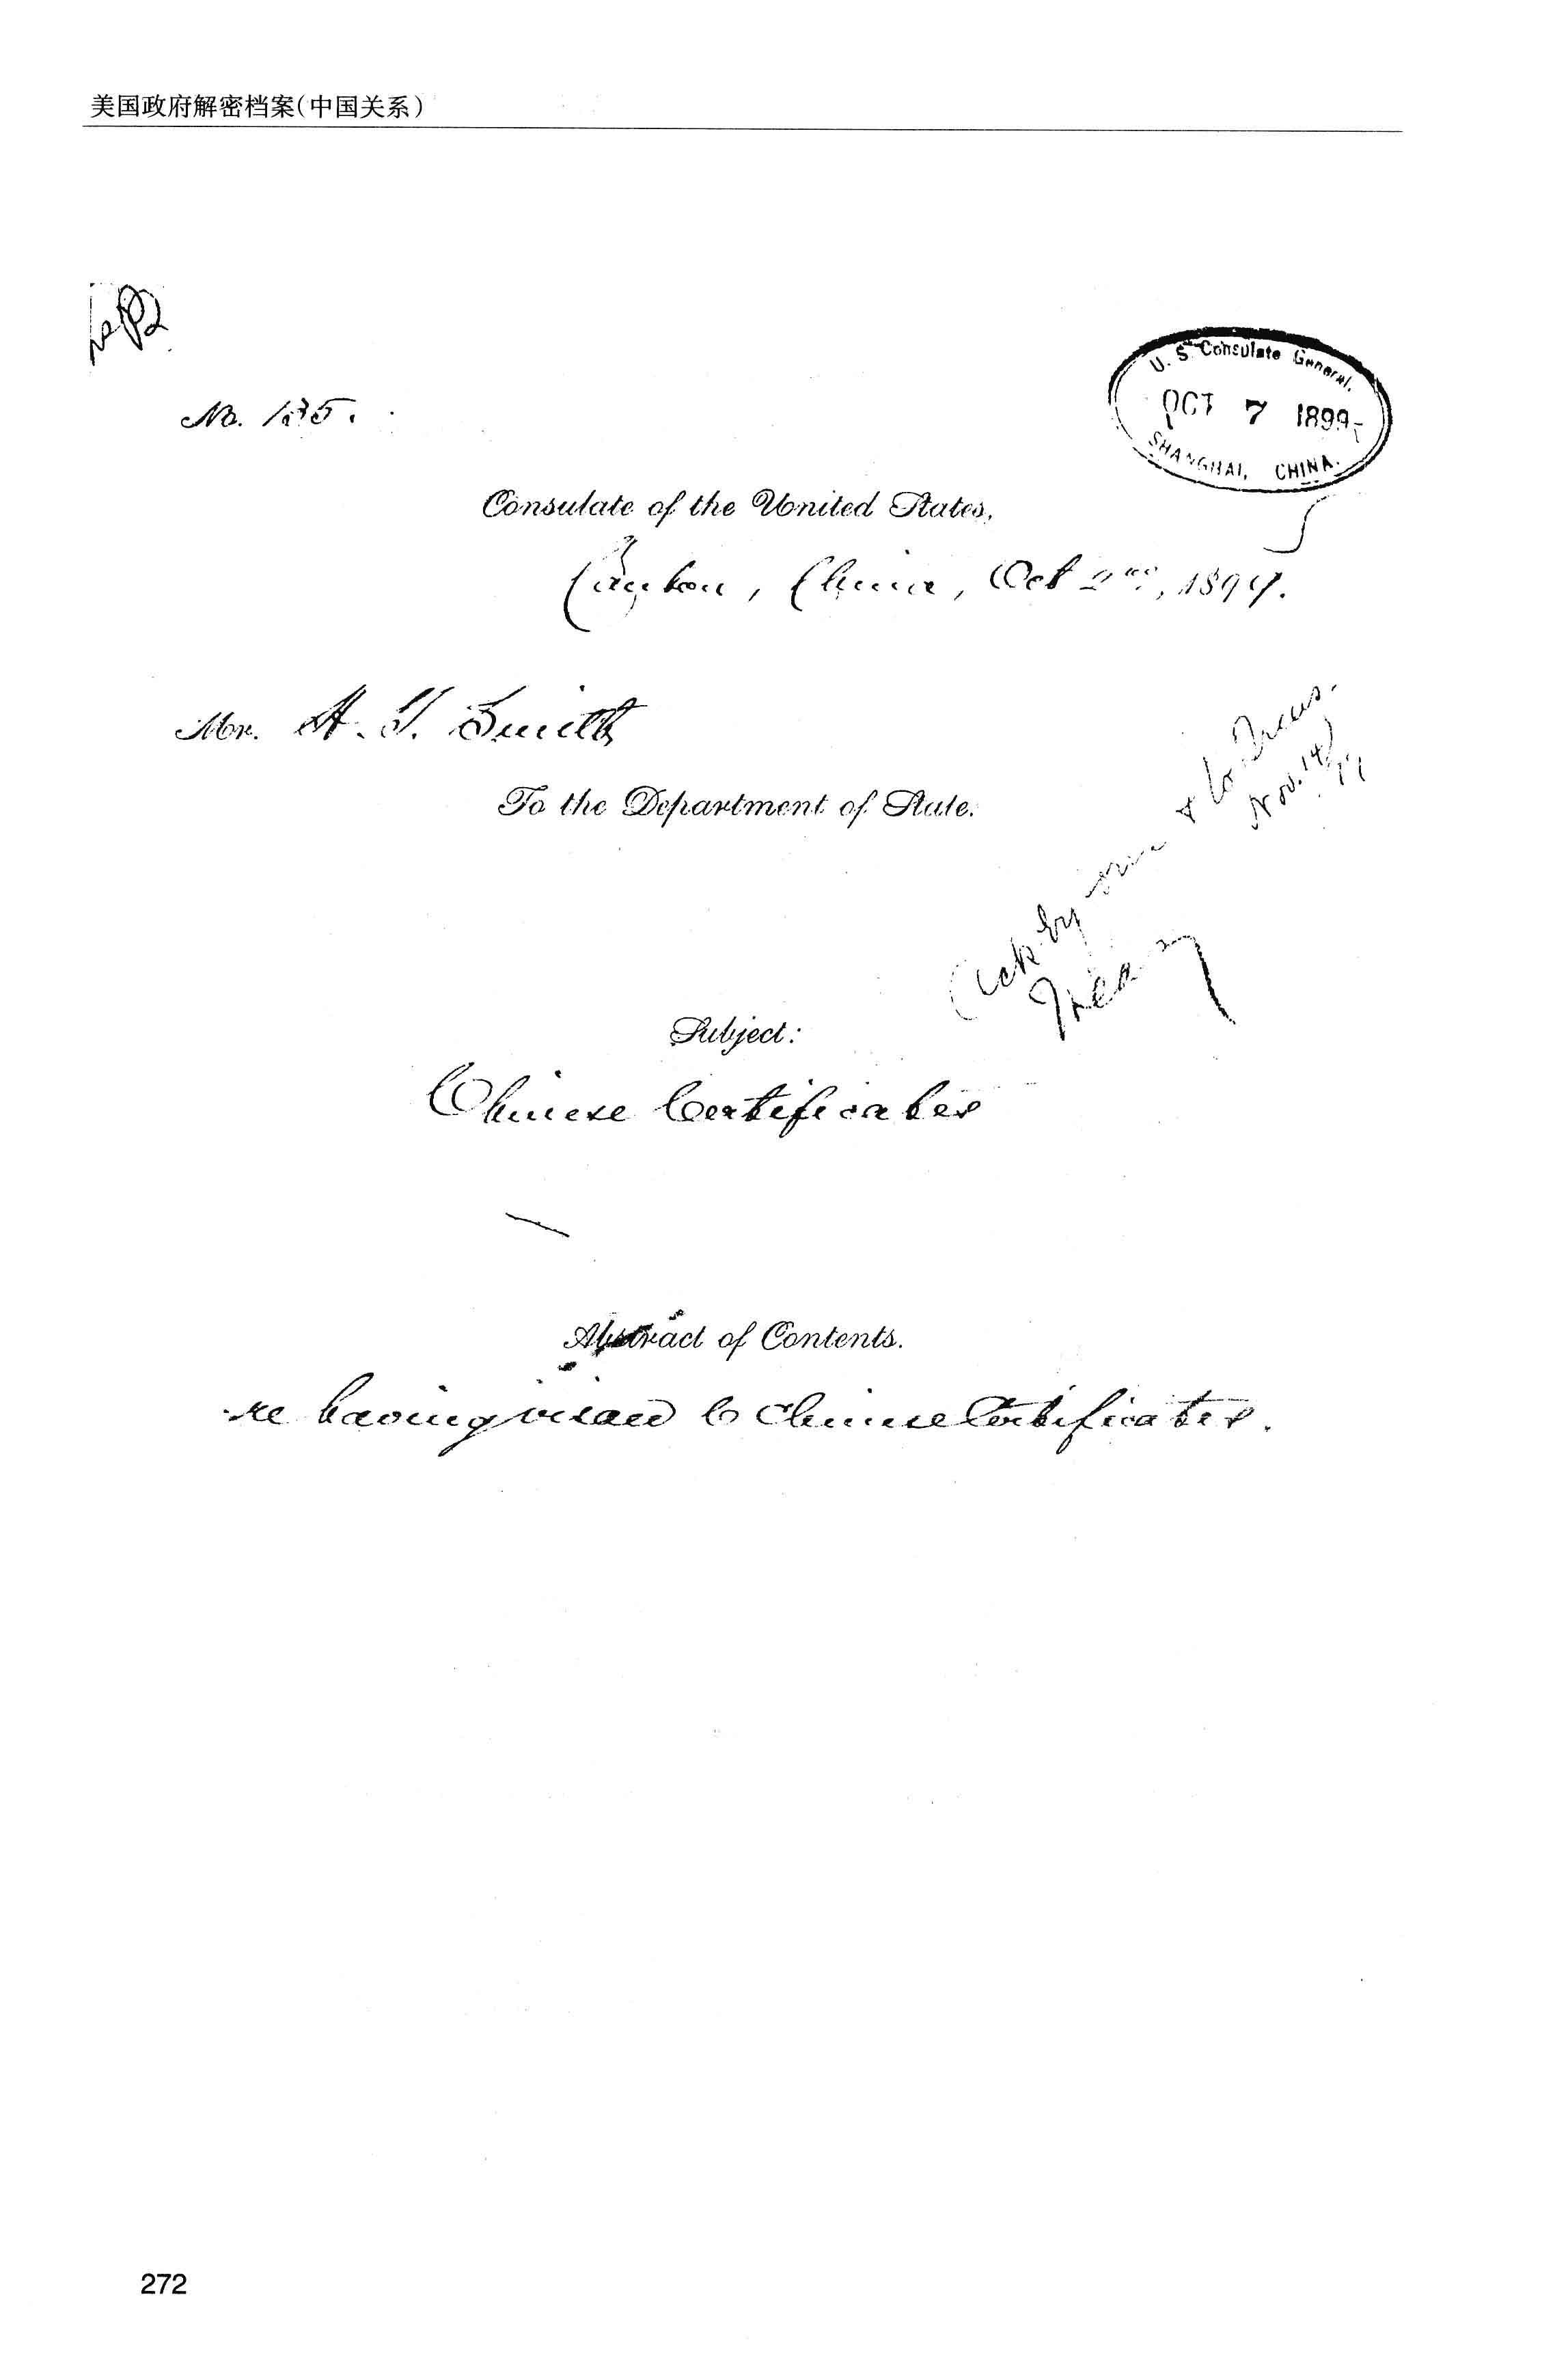 美国政府解密档案(中国关系)
No. 135.
U. S. Consulate General,
OCT 7 1899
SHANGHAI, CHINA.
Consulate of the United States,
Canton, China, Oct 2nd, 1899.
Mr. H. Smith
To the Department of State.
& to Treas.
Nov. 14
Ack by
Subject:
Chinese Certificates
Abstract of Contents.
re having to Chinese Certificates.
272